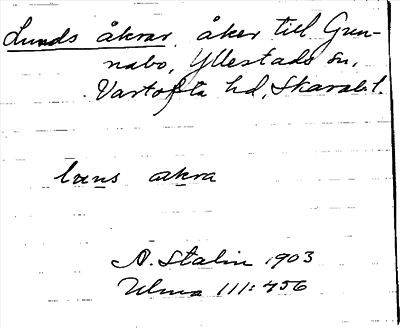 Lunds åkrar, åker till Gun-
nabo, Yllestads sn,
Vartofta hd, Skarab. l.
luns akra
A. Stalin 1903
Ulma 111:456